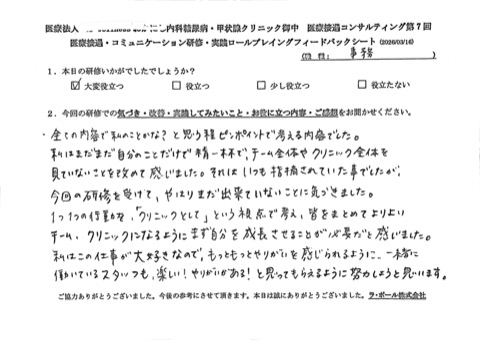 医療法人 にし内科糖尿病・甲状腺クリニック御中 医療接遇コンサルティング第7回
医療接遇・コミュニケーション研修・実践ロールプレイングフィードバックシート (2026/03/16)
事務
1.本日の研修いかがでしたでしょうか?
☑大変役立つ □役立つ □少し役立つ □役立たない
2.今回の研修での気づき・改善・実践してみたいこと・お役に立つ内容・ご感想をお聞かせください。
・全ての内容で私のことかな?と思う程ピンポイントで考える内容でした。
私はまだまだ自分のことだけで精一杯で、チーム全体やクリニック全体を
見ていないことを改めて感じました。それはいつも指摘されていた事でしたが、
今回の研修を受けて、やはりまだ出来ていないことに気づきました。
1つ1つの行動を、「クリニックとして」という視点で考え、皆をまとめてよりよい
チーム、クリニックになるようにまず自分を成長させることが必要だと感じました。
私はこの仕事が大好きなので、もっともっとやりがいを感じられるように、一緒に
働いているスタッフも、楽しい!やりがいがある!と思ってもらえるように努力しようと思います。
ご協力ありがとうございました。今後の参考にさせて頂きます。本日は誠にありがとうございました。ラ・ポール株式会社